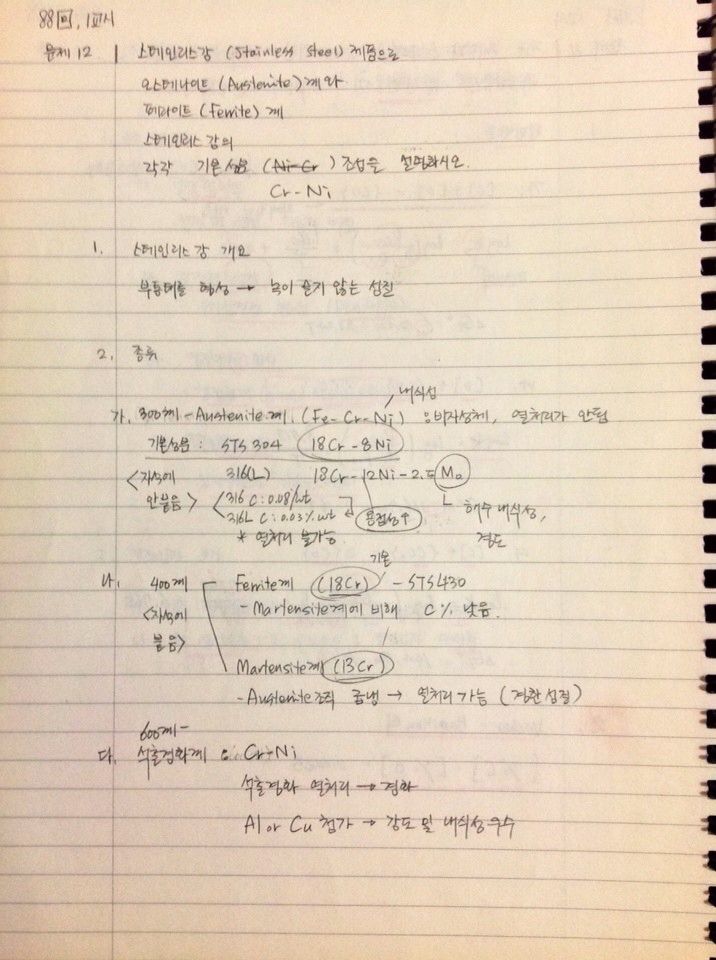 88回, 1교시
문제 12 | 스테인리스강 (Stainless steel) 제품으로
오스테나이트 (Austenite) 계와
페라이트 (Ferrite) 계
스테인리스강의
각각 기본성분 (Ni-Cr) 조성을 설명하시오.
Cr-Ni
1. 스테인리스강 개요
부동태를 형성 → 녹이 슬지 않는 성질
2. 종류
내식성
가. 300계 - Austenite계. (Fe-Cr-Ni) : 비자성체, 열처리가 안됨
기본성분 : STS 304 18Cr-8Ni
<자석에 안붙음>
316(L) 18Cr-12Ni-2.5Mo
316 C: 0.08%wt
316L C: 0.03%wt
용접성우수
해수 내식성, 경도
* 열처리 불가능
기본
나. 400계 Ferrite계 (18Cr) - STS430
<자석에 붙음>
- Martensite계에 비해 C% 낮음.
Martensite계 (13Cr)
- Austenite조직 급냉 → 열처리 가능 (경한 성질)
600계 -
다. 석출경화계 : Cr+Ni
석출경화 열처리 → 경화
Al or Cu 첨가 → 강도 및 내식성 우수